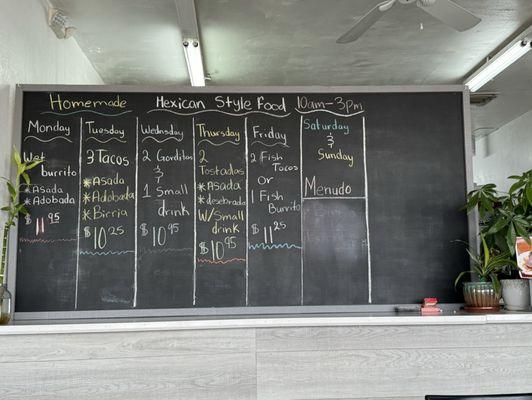 Homemade Mexican Style Food 10am-3pm
Monday
Wet
burrito
*Asada
*Adobada
$ 11 95
Tuesday
3 Tacos
*Asada
*Adobada
*Birria
$ 10 25
Wednesday
2 Gorditas
&
1 Small
drink
$ 10 95
Thursday
2
Tostados
*Asada
*desebrada
W/ Small
drink
$ 10 95
Friday
2 Fish
Tacos
or
1 Fish
Burrito
$ 11 25
Saturday
&
Sunday
Menudo